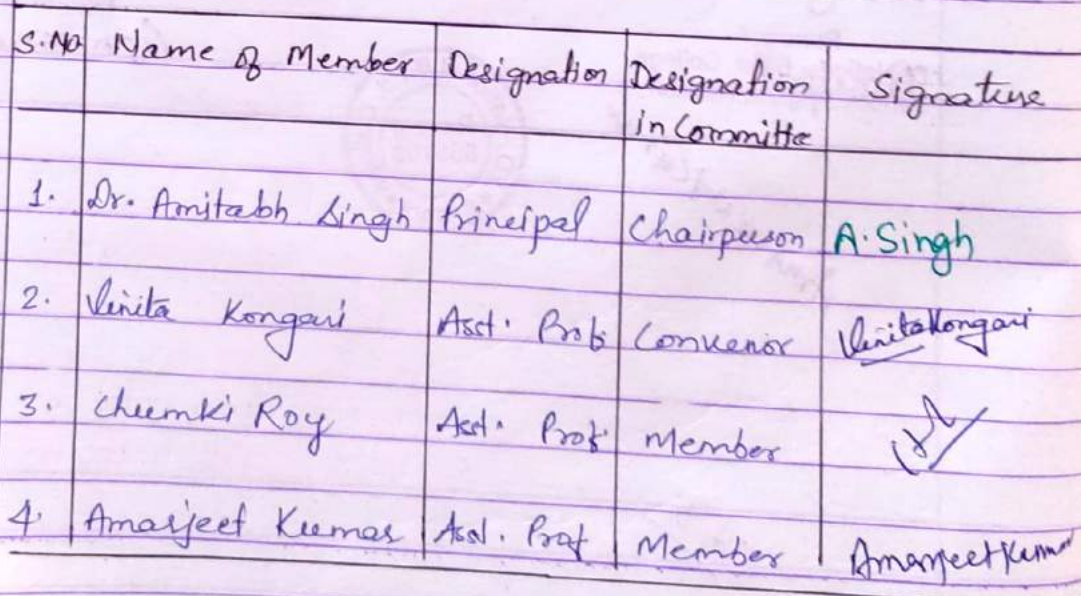 S.No Name of Member Designation Designation in Committe Signature
1. Dr. Amitabh Singh Principal Chairperson A. Singh
2. Vinita Kongari Asst. Prof. Convenor Vinita Kongari
3. Chumki Roy Asst. Prof. Member
4. Amarjeet Kumar Asst. Prof Member Amarjeet Kumar